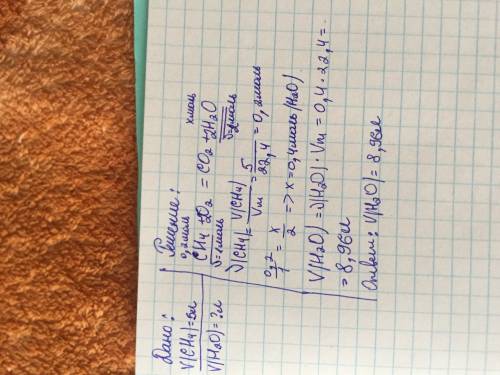 Дано:
V(CH4)=5л
V(H2O)=?л
Решение:
0,2моль хмоль
CH4 + 2O2 = CO2 + 2H2O
ν=1моль ν=2моль
ν(CH4)= V(CH4) / Vm = 5 / 22,4 = 0,2моль
0,2 / 1 = x / 2 => x=0,4моль(H2O)
V(H2O)=ν(H2O)·Vm=0,4·22,4=
=8,96л
Ответ: V(H2O)=8,96л